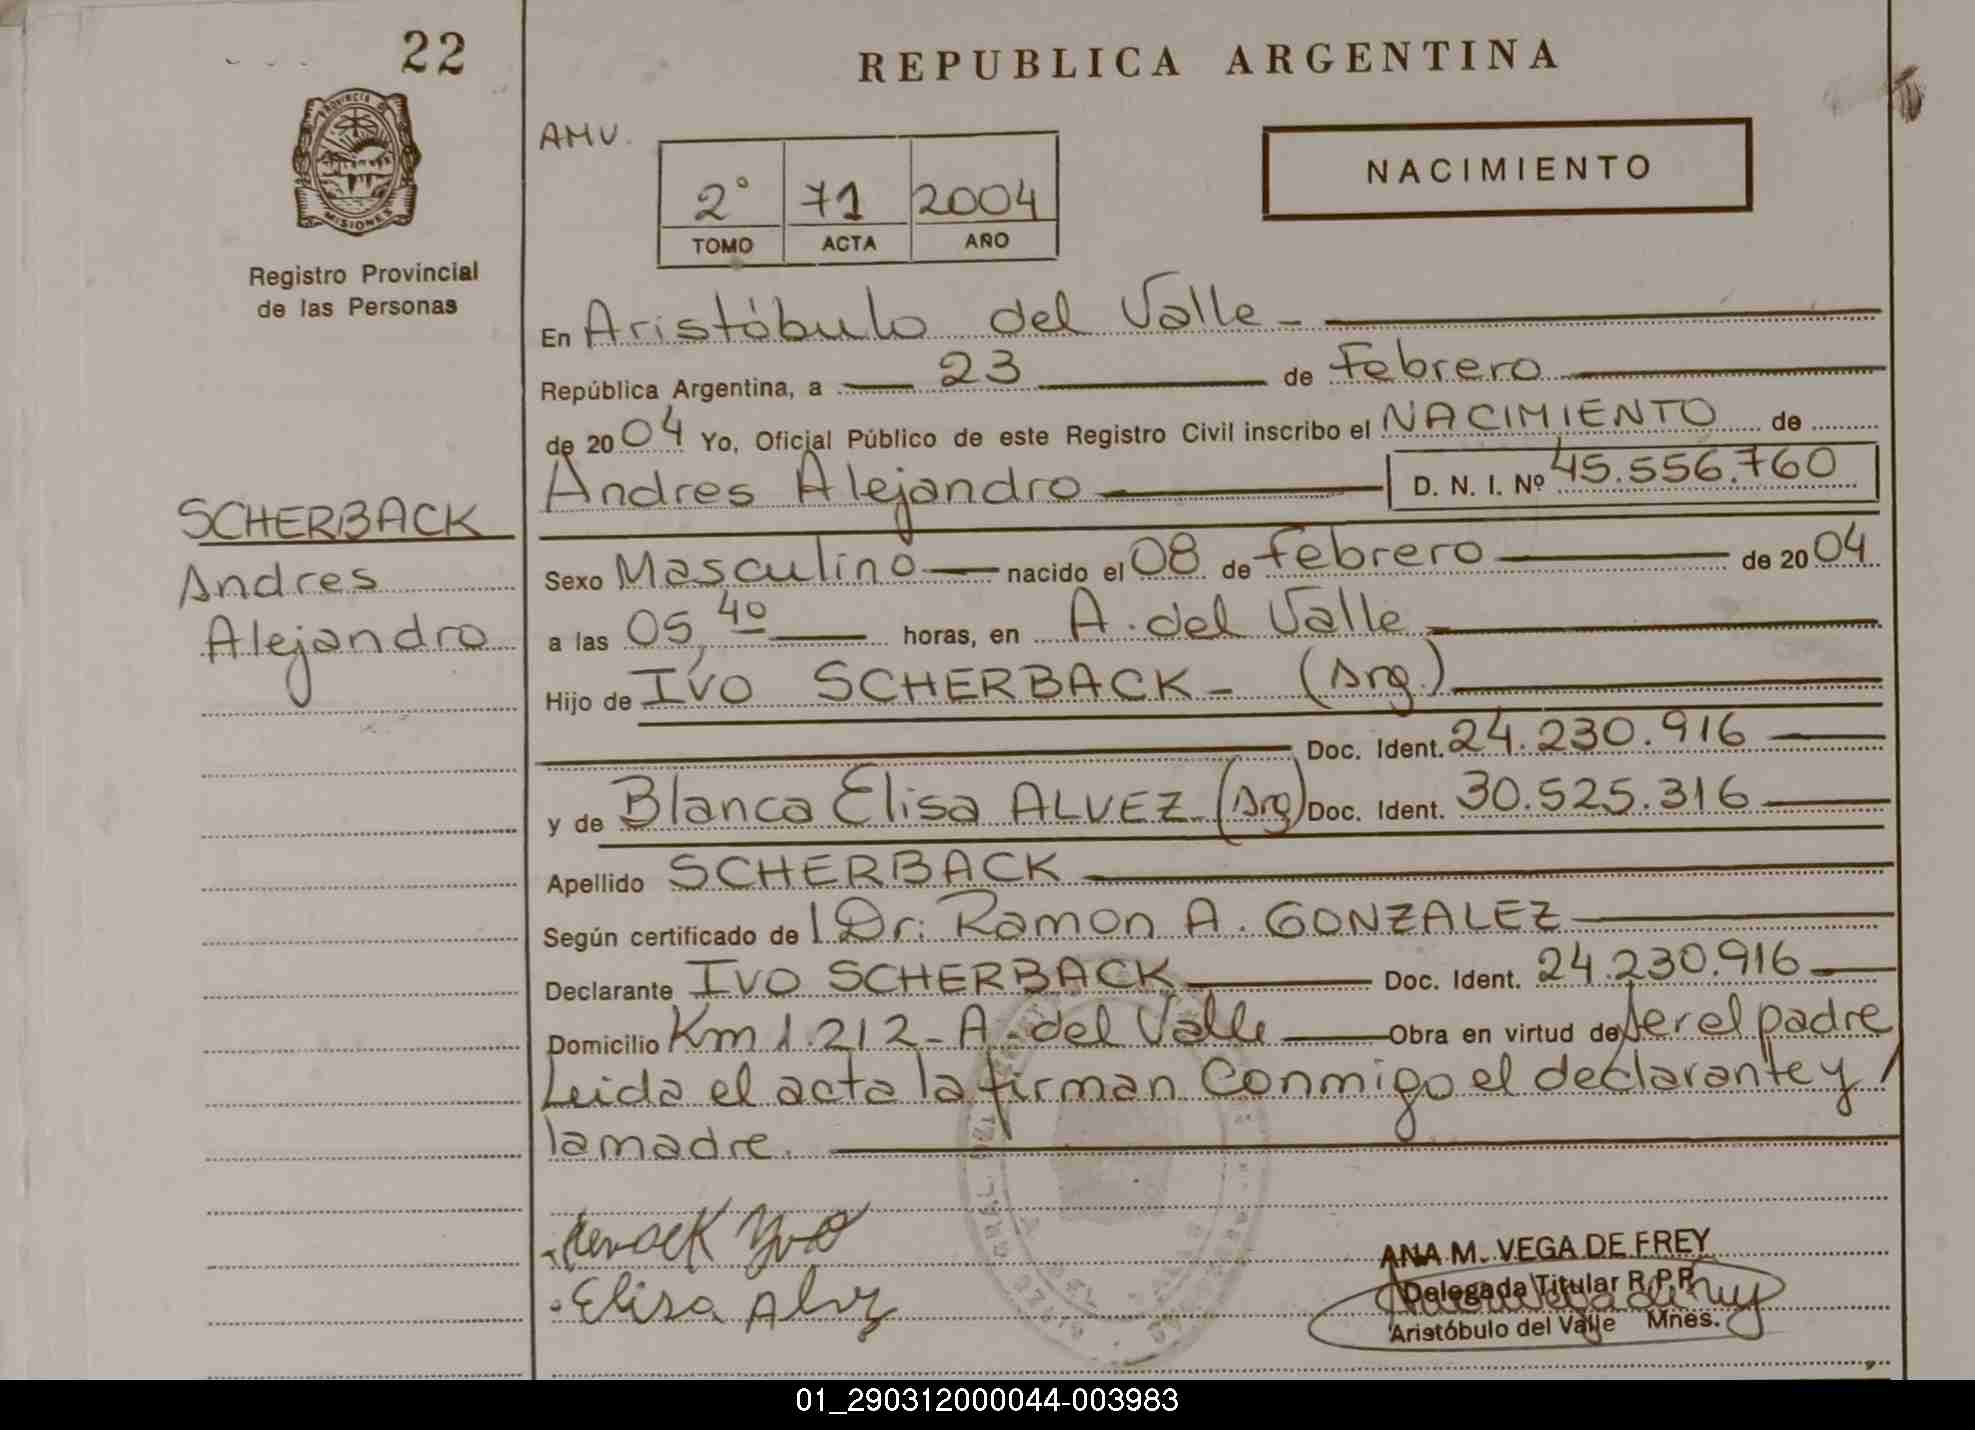 22
PROVINCIA DE
MISIONES
Registro Provincial
de las Personas
SCHERBACK
Andres
Alejandro
REPUBLICA ARGENTINA
AMV.
2° 71 2004
TOMO ACTA AÑO
NACIMIENTO
En Aristóbulo del Valle -
República Argentina, a 23 de Febrero
de 2004 Yo, Oficial Público de este Registro Civil inscribo el NACIMIENTO de
Andres Alejandro D. N. I. Nº 45.556.760
Sexo Masculino nacido el 08 de febrero de 2004
a las 05,40 horas, en A. del Valle
Hijo de IVO SCHERBACK - (Arg.)
Doc. Ident. 24.230.916
y de Blanca Elisa ALVEZ (Arg) Doc. Ident. 30.525.316
Apellido SCHERBACK
Según certificado de l Dr: Ramon A. GONZALEZ
Declarante IVO SCHERBACK Doc. Ident. 24.230.916
Domicilio Km 1.212 - A. del Valle Obra en virtud de ser el padre
Leida el acta la firman conmigo el declarante y /
la madre.
Yvo
Elisa Alvez
ANA M. VEGA DE FREY
Delegada Titular R.P.P.
Aristóbulo del Valle Mnes.
01_290312000044-003983